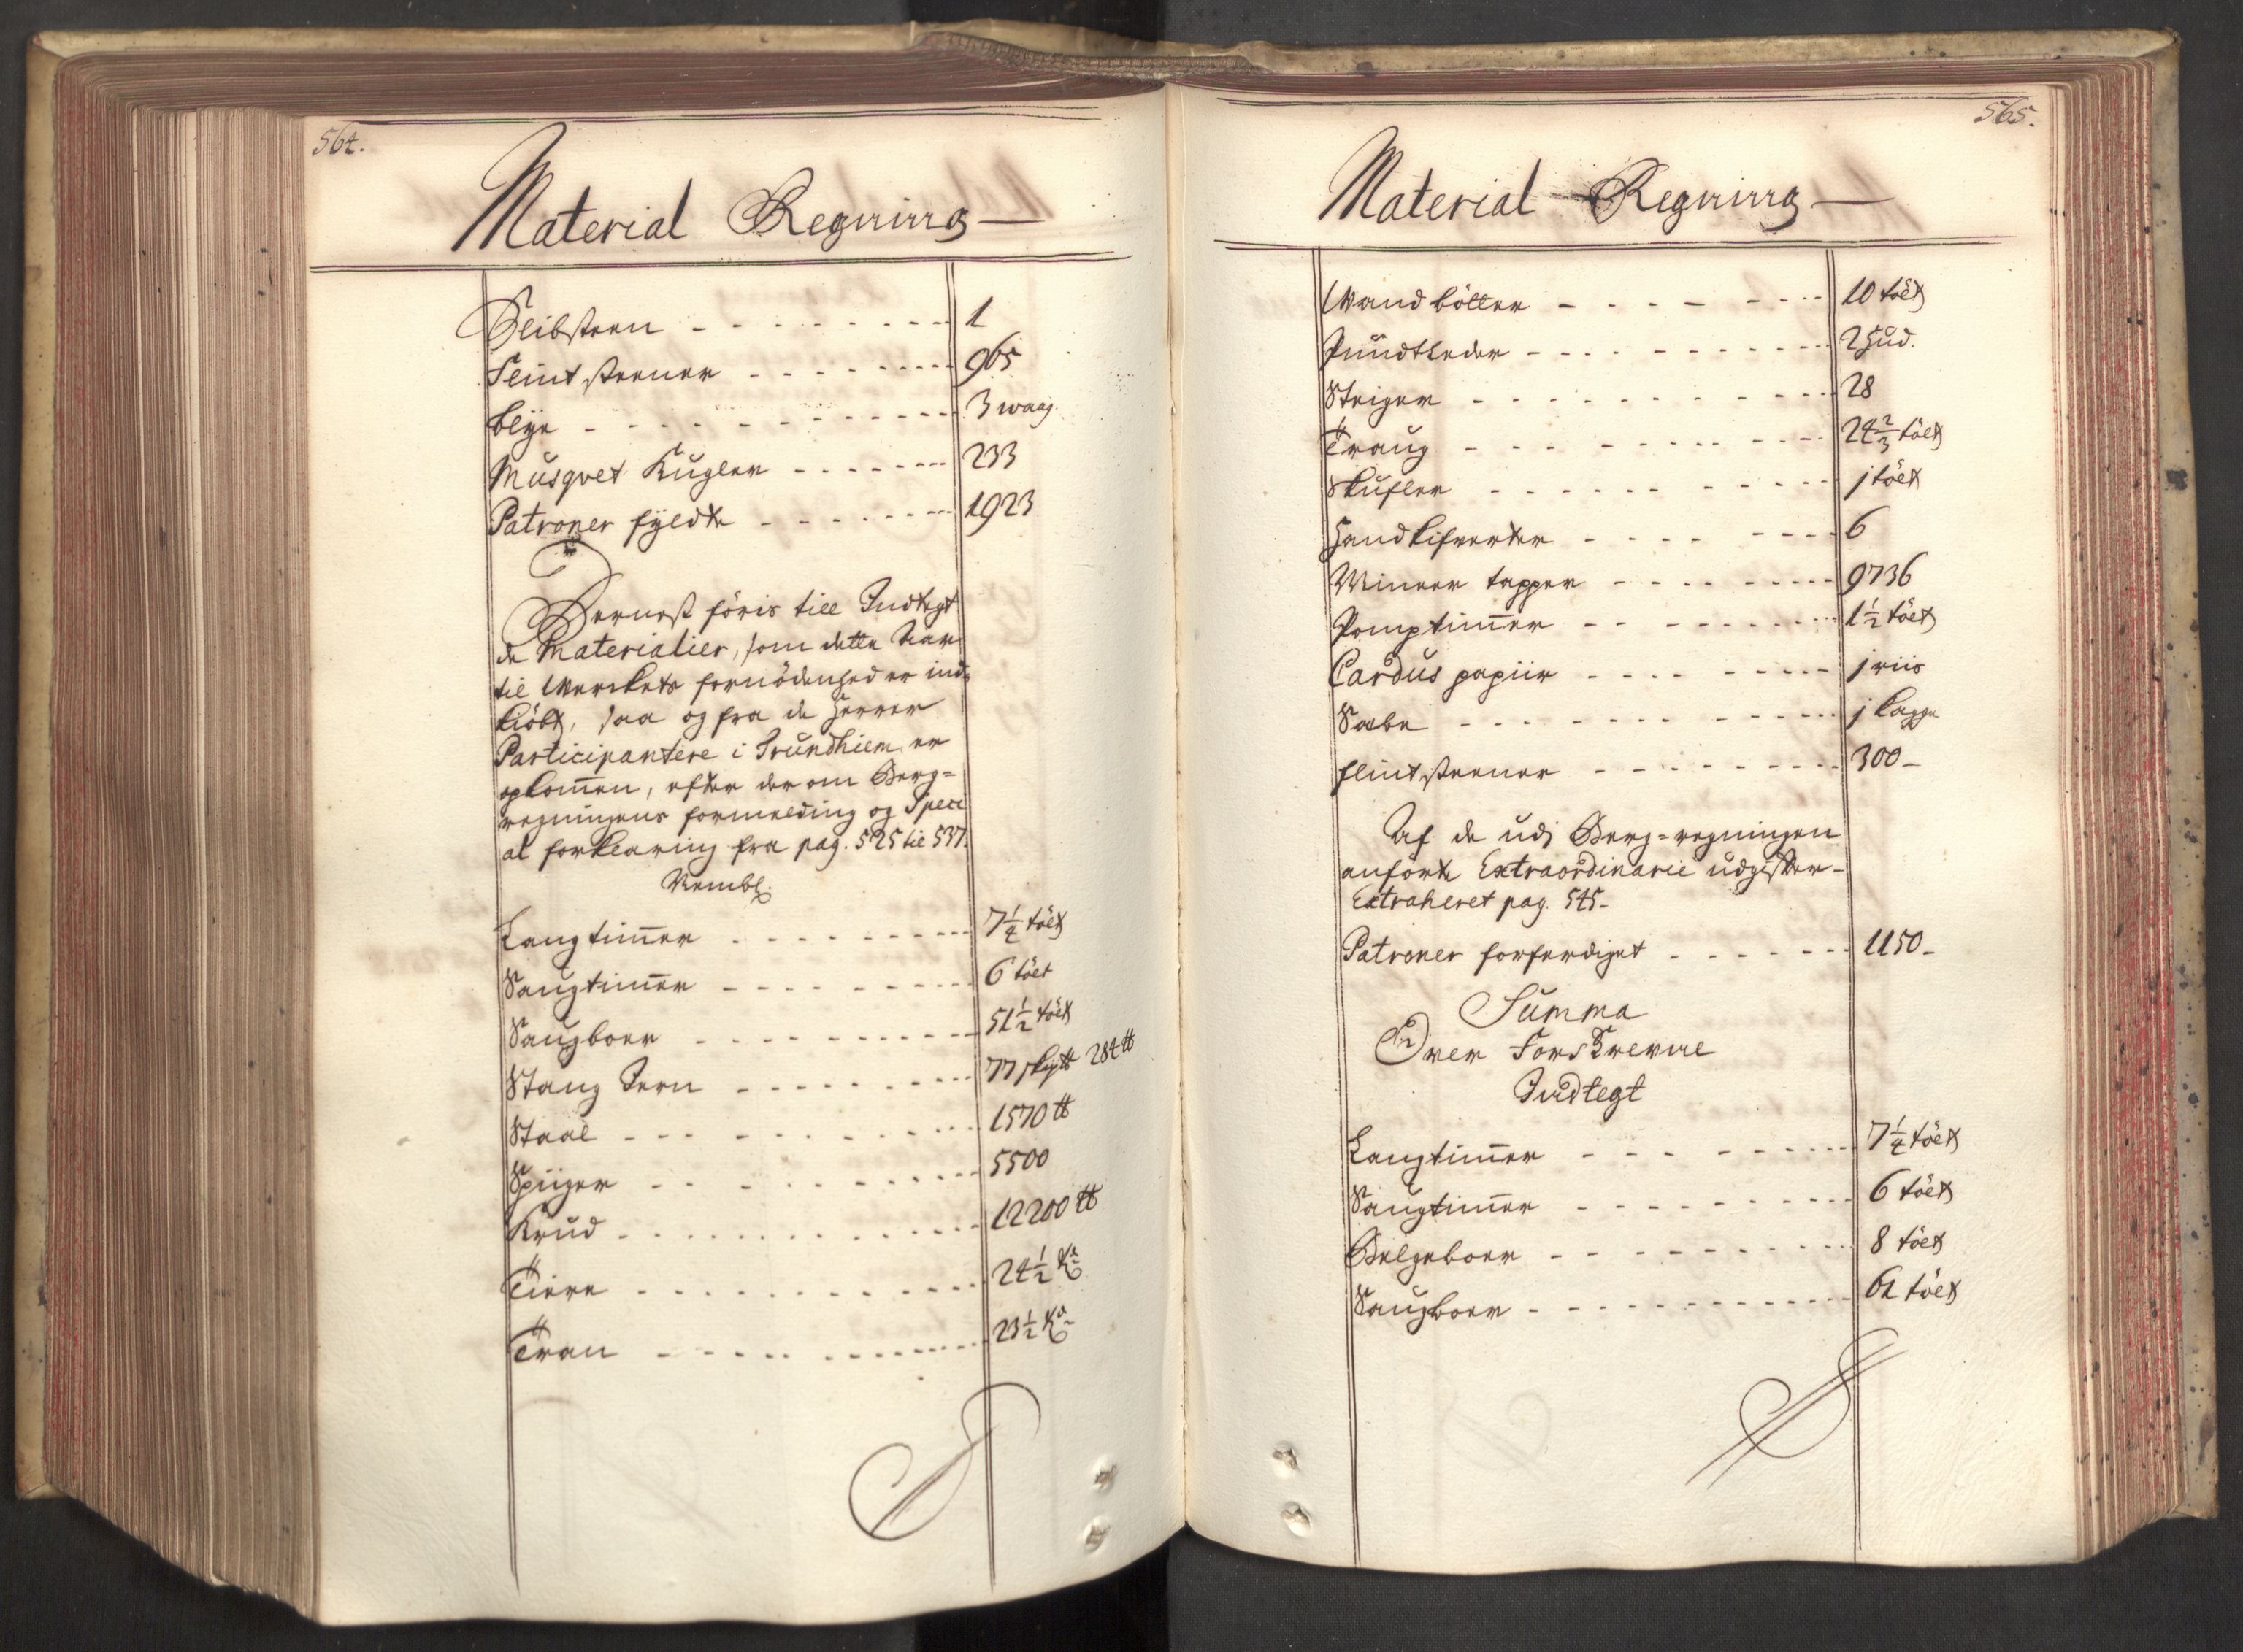 564.
Material Regning
Slibsteen - - - - - - - - 1
Flint steener - - - - - - - - 965
blÿe - - - - - - - - - - 3 waag
Musqvet Kugler - - - - - - - 233
Patroner fÿldte - - - - - - - 1923
Dernest föris till Indtegt
de Materialier, som dette Aar
til Werckets fornödenheder ind-
kiöbt, saa og fra de Herrer
Participantere i Trundhiem er
opkomen, efter derom Berg-
regningens formelding og Speci
al forklaring fra pag. 525 til 537.
Nembl:
Langtimer - - - - - - - - 7 1/4 tölt
Saugtimer - - - - - - - - 6 tölt
Saugboer - - - - - - - - - 51 1/2 tölt
Stang Jern - - - - - - - - 77 skp℔ 284 ℔
Staal - - - - - - - - - 1570 ℔
Spiiger - - - - - - - - - 5500
Krud - - - - - - - - - - 12200 ℔
Tiere - - - - - - - - - - 24 1/2
Tran - - - - - - - - - - 23 1/2
565.
Material Regning
Wand bötter - - - - - - - 10 tölt
Pundtleder - - - - - - - - 2 Hud.
Steiger - - - - - - - - - 28
Traug - - - - - - - - - 24 2/3 tölt
Skufler - - - - - - - - - j tölt
Handkifverter - - - - - - - 6
Mineer tapper - - - - - - - 9736
Pomptimer - - - - - - - - 1 1/2 tölt
Cardus papiir - - - - - - - j riis
Sæbe - - - - - - - - - j kagge
flintsteener - - - - - - - - 300 -
Af de udj Berg-regningen
anförte Extraordinarie udgifter -
Extraheret pag. 545 -
Patroner forferdiget - - - - - - 1150 -
Summa
Over Forskrevne
Indtegt
Langtimer - - - - - - - - 7 1/4 tölt
Saugtimer - - - - - - - - 6 tölt
Belgeboer - - - - - - - - 8 tölt
Saugboer - - - - - - - - - 61 tölt